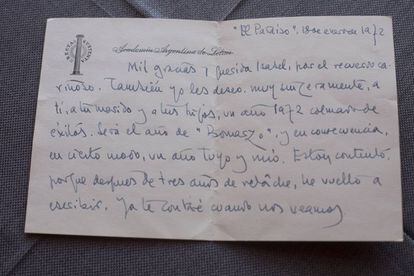 "El Paraíso", 18 de enero de 1972
Academia Argentina de Letras
Mil gracias, querida Isabel, por el recuerdo ca-
riñoso. También yo les deseo, muy sinceramente, a
ti, a tu marido y a tus hijos, un año 1972 colmado de
éxitos. Será el año de "Bomarzo", y en consecuencia,
en cierto modo, un año tuyo y mío. Estoy contento,
porque después de tres años de relâche, he vuelto a
escribir. Ya te contaré cuando nos veamos.